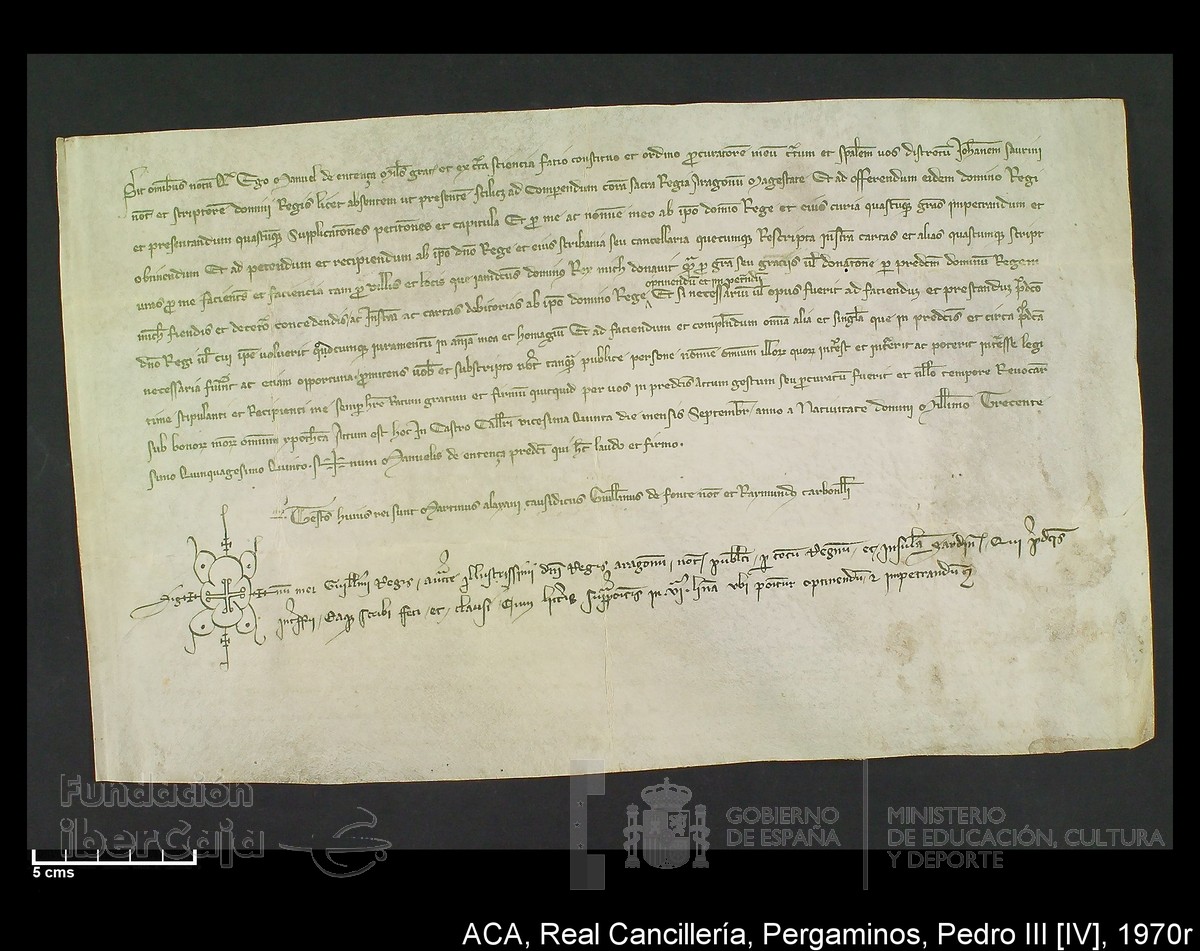 Sit omnibus notum Ego Manuel de entença miles gratis et ex certa sciencia facio constituo et ordino procuratorem meum certum et spalem vos discretum Johannem saurini
not et scriptorem domini Regis licet absentem ut presentem scilicz ad Comperendum coram sacra Regia Aragonum Magestate Et ad offerendum eidem domino Regi
et presentandum quascumque Supplicationes peticiones et capitula Et pro me ac nomine meo ab ipso domino Rege et eius curia quascumque gras impetrandum et
obtinendum Et ad petendum et recipiendum ab ipso dno Rege et eius scribania seu cancellaria quecumque Rescripta instra cartas et alias quascumque script
uras pro me facientes et faciencia tam pro villis et locis que iamdictus dominus Rex mich donavit per gra seu graciis vel donatione per predcm dominum Regem
optinendum et impetrandum
mich fiendis et decetero concedendis ac Instra ac cartas debitorias ab ipso domino Rege Et si necessarium vel opus fuerit ad faciendum et prestandum predco
dno Regi vel cui ipse voluerit quodcumque iuramentum in animam mea et homagium Et ad faciendum et complendum omnia alia et singla que in predcis et circa predca
necessaria fuerint ac eciam opportuna promitens vob et subscripto not tanquam publice persone nomine omnium illorum quorum interest et intererit ac poterit interesse legi
time stipulanti et Recipienti me semper hre Ratum gratum et firmum quicquid per vos in predcis actum gestum seu procuratum fuerit et nullo tempore Revocare
sub bonorum meorum omnium ypotheca Actum est hoc In Castro Callri vicesima Quinta die mensis Septembr anno a Nativitate domini Millimo Trecente
simo Quinquagesimo Quinto. Signum Manuelis de entença predci qui hec laudo et firmo.
Testes huius rei sunt Martinus alayani causidicus Guillmus de fonte not et Raymundus carbonelli
Signum mei Guillmi Regis, aucte illustrissimi dni Regis aragonum, not publici per totum Regnum et insulam Sardin, Qui predcis
interfui, eaque scribi feci, et clausi Cum litteris suprapositis in VI linea ubi ponitur optinendum et impetrandum
5 cms
Fundación
iberCaja
GOBIERNO
DE ESPAÑA
MINISTERIO
DE EDUCACIÓN, CULTURA
Y DEPORTE
ACA, Real Cancillería, Pergaminos, Pedro III [IV], 1970r